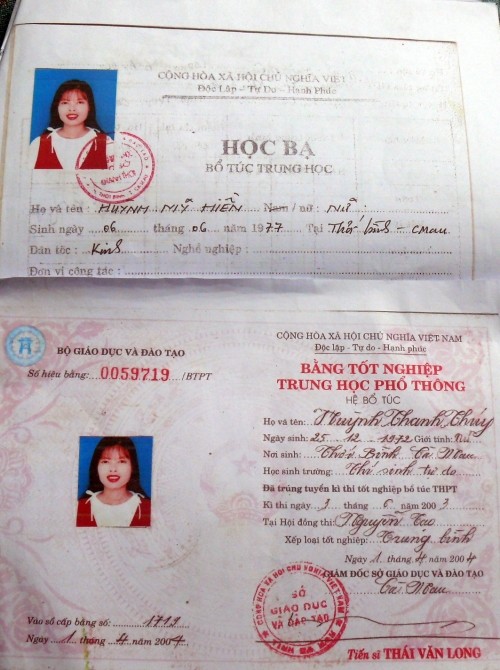 CỘNG HÒA XÃ HỘI CHỦ NGHĨA VIỆT
Độc Lập - Tự Do - Hạnh Phúc
HỌC BẠ
BỔ TÚC TRUNG HỌC
Họ và tên : HUỲNH MỸ HIỀN Nam / nữ : NỮ
Sinh ngày 06 tháng 06 năm 1977 Tại Thới Bình - CMau
Dân tộc : Kinh Nghề nghiệp :
Đơn vị công tác :
BỘ GIÁO DỤC VÀ ĐÀO TẠO
Số hiệu bằng: 0059719 /BTPT
CỘNG HÒA XÃ HỘI CHỦ NGHĨA VIỆT NAM
Độc lập - Tự do - Hạnh phúc
BẰNG TỐT NGHIỆP
TRUNG HỌC PHỔ THÔNG
HỆ BỔ TÚC
Họ và tên: Huỳnh Thanh Thúy
Ngày sinh: 25 . 12 . 1972 Giới tính: Nữ
Nơi sinh: Thới Bình Cà Mau
Học sinh trường: Thí sinh tự do
Đã trúng tuyển kì thi tốt nghiệp bổ túc THPT
Kì thi ngày 3 tháng 6 năm 2003
Tại Hội đồng thi: Nguyễn
Xếp loại tốt nghiệp: Trung bình
Ngày 1 tháng 4 năm 2004
GIÁM ĐỐC SỞ GIÁO DỤC VÀ ĐÀO TẠO
Cà Mau
SỞ
GIÁO DỤC
VÀ ĐÀO TẠO
Vào sổ cấp bằng số: 1719
Ngày 1 tháng 4 năm 2004
Tiến sĩ THÁI VĂN LONG